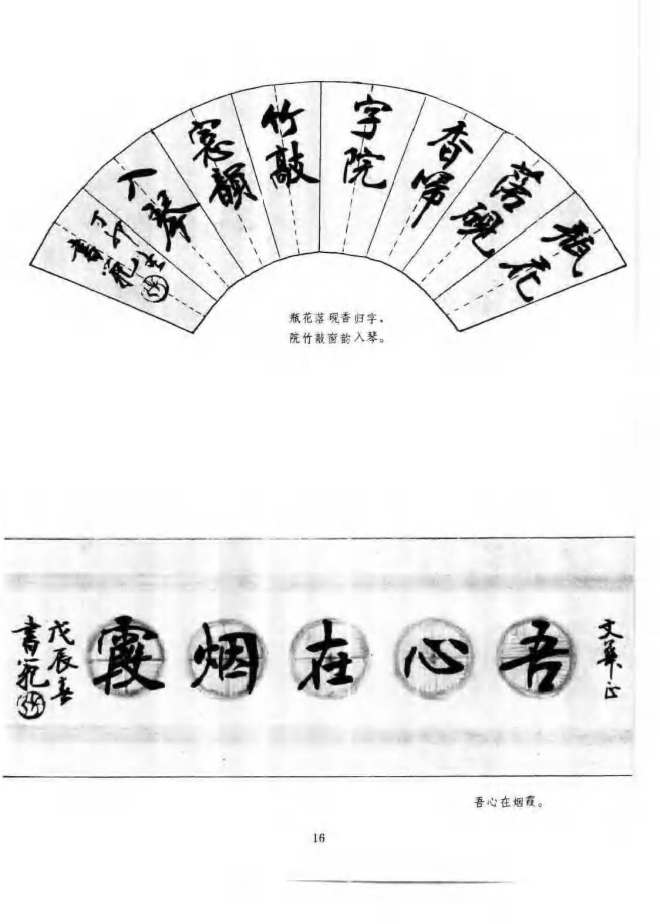 瓶花
落硯
香歸
字院
竹敲
窓韻
入琴
丁卯
書
瓶花落砚香归字，
院竹敲窗韵入琴。
文华正
吾心在烟霞
戊辰
書
吾心在烟霞。
16